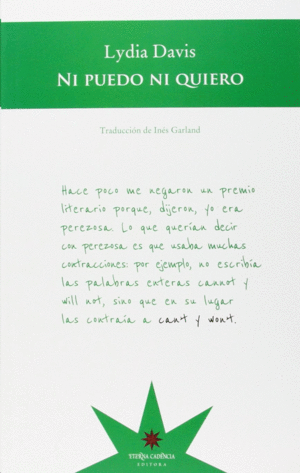 Lydia Davis
NI PUEDO NI QUIERO
Traducción de Inés Garland
Hace poco me negaron un premio
literario porque, dijeron, yo era
perezosa. Lo que querían decir
con perezosa es que usaba muchas
contracciones: por ejemplo, no escribía
las palabras enteras cannot y
will not, sino que en su lugar
las contraía a can't y won't.
ETERNA CADENCIA
EDITORA